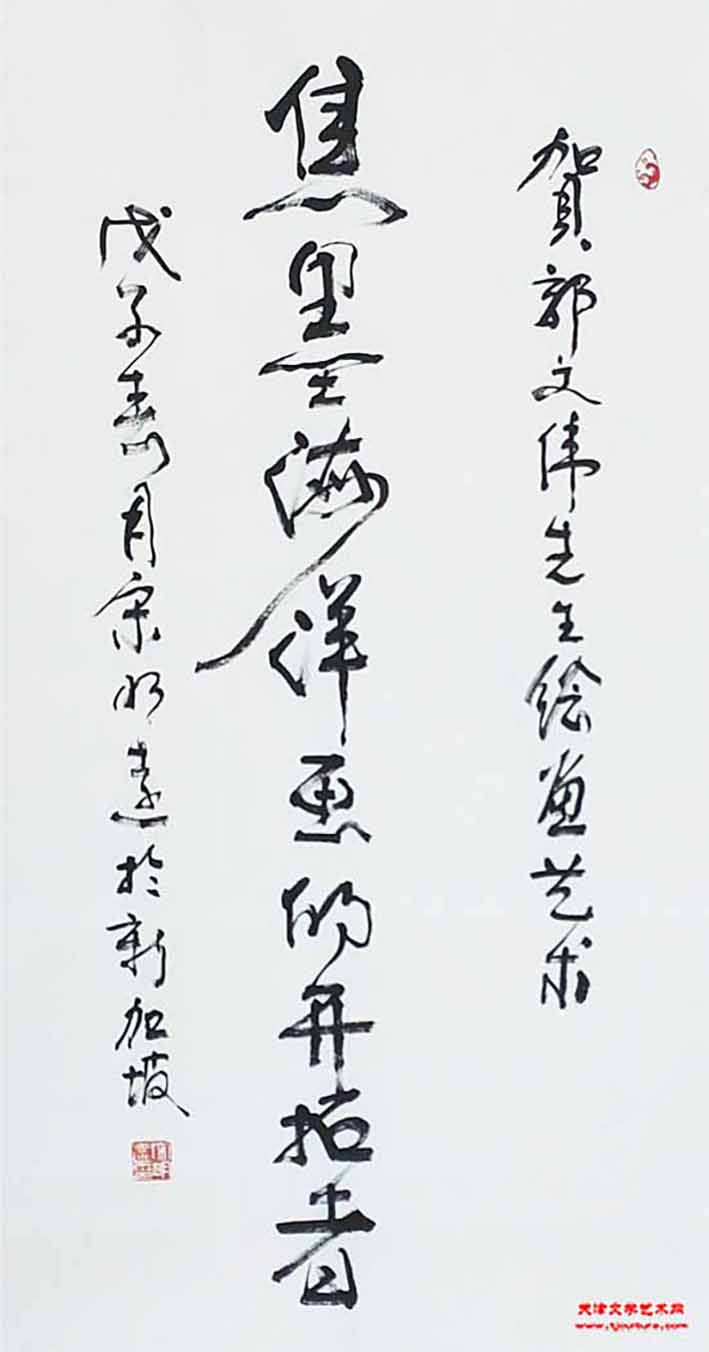 賀郭文伟先生绘画艺术
焦墨海洋画的开拓者
戊子春月宋明远於新加坡
天津文学艺术网